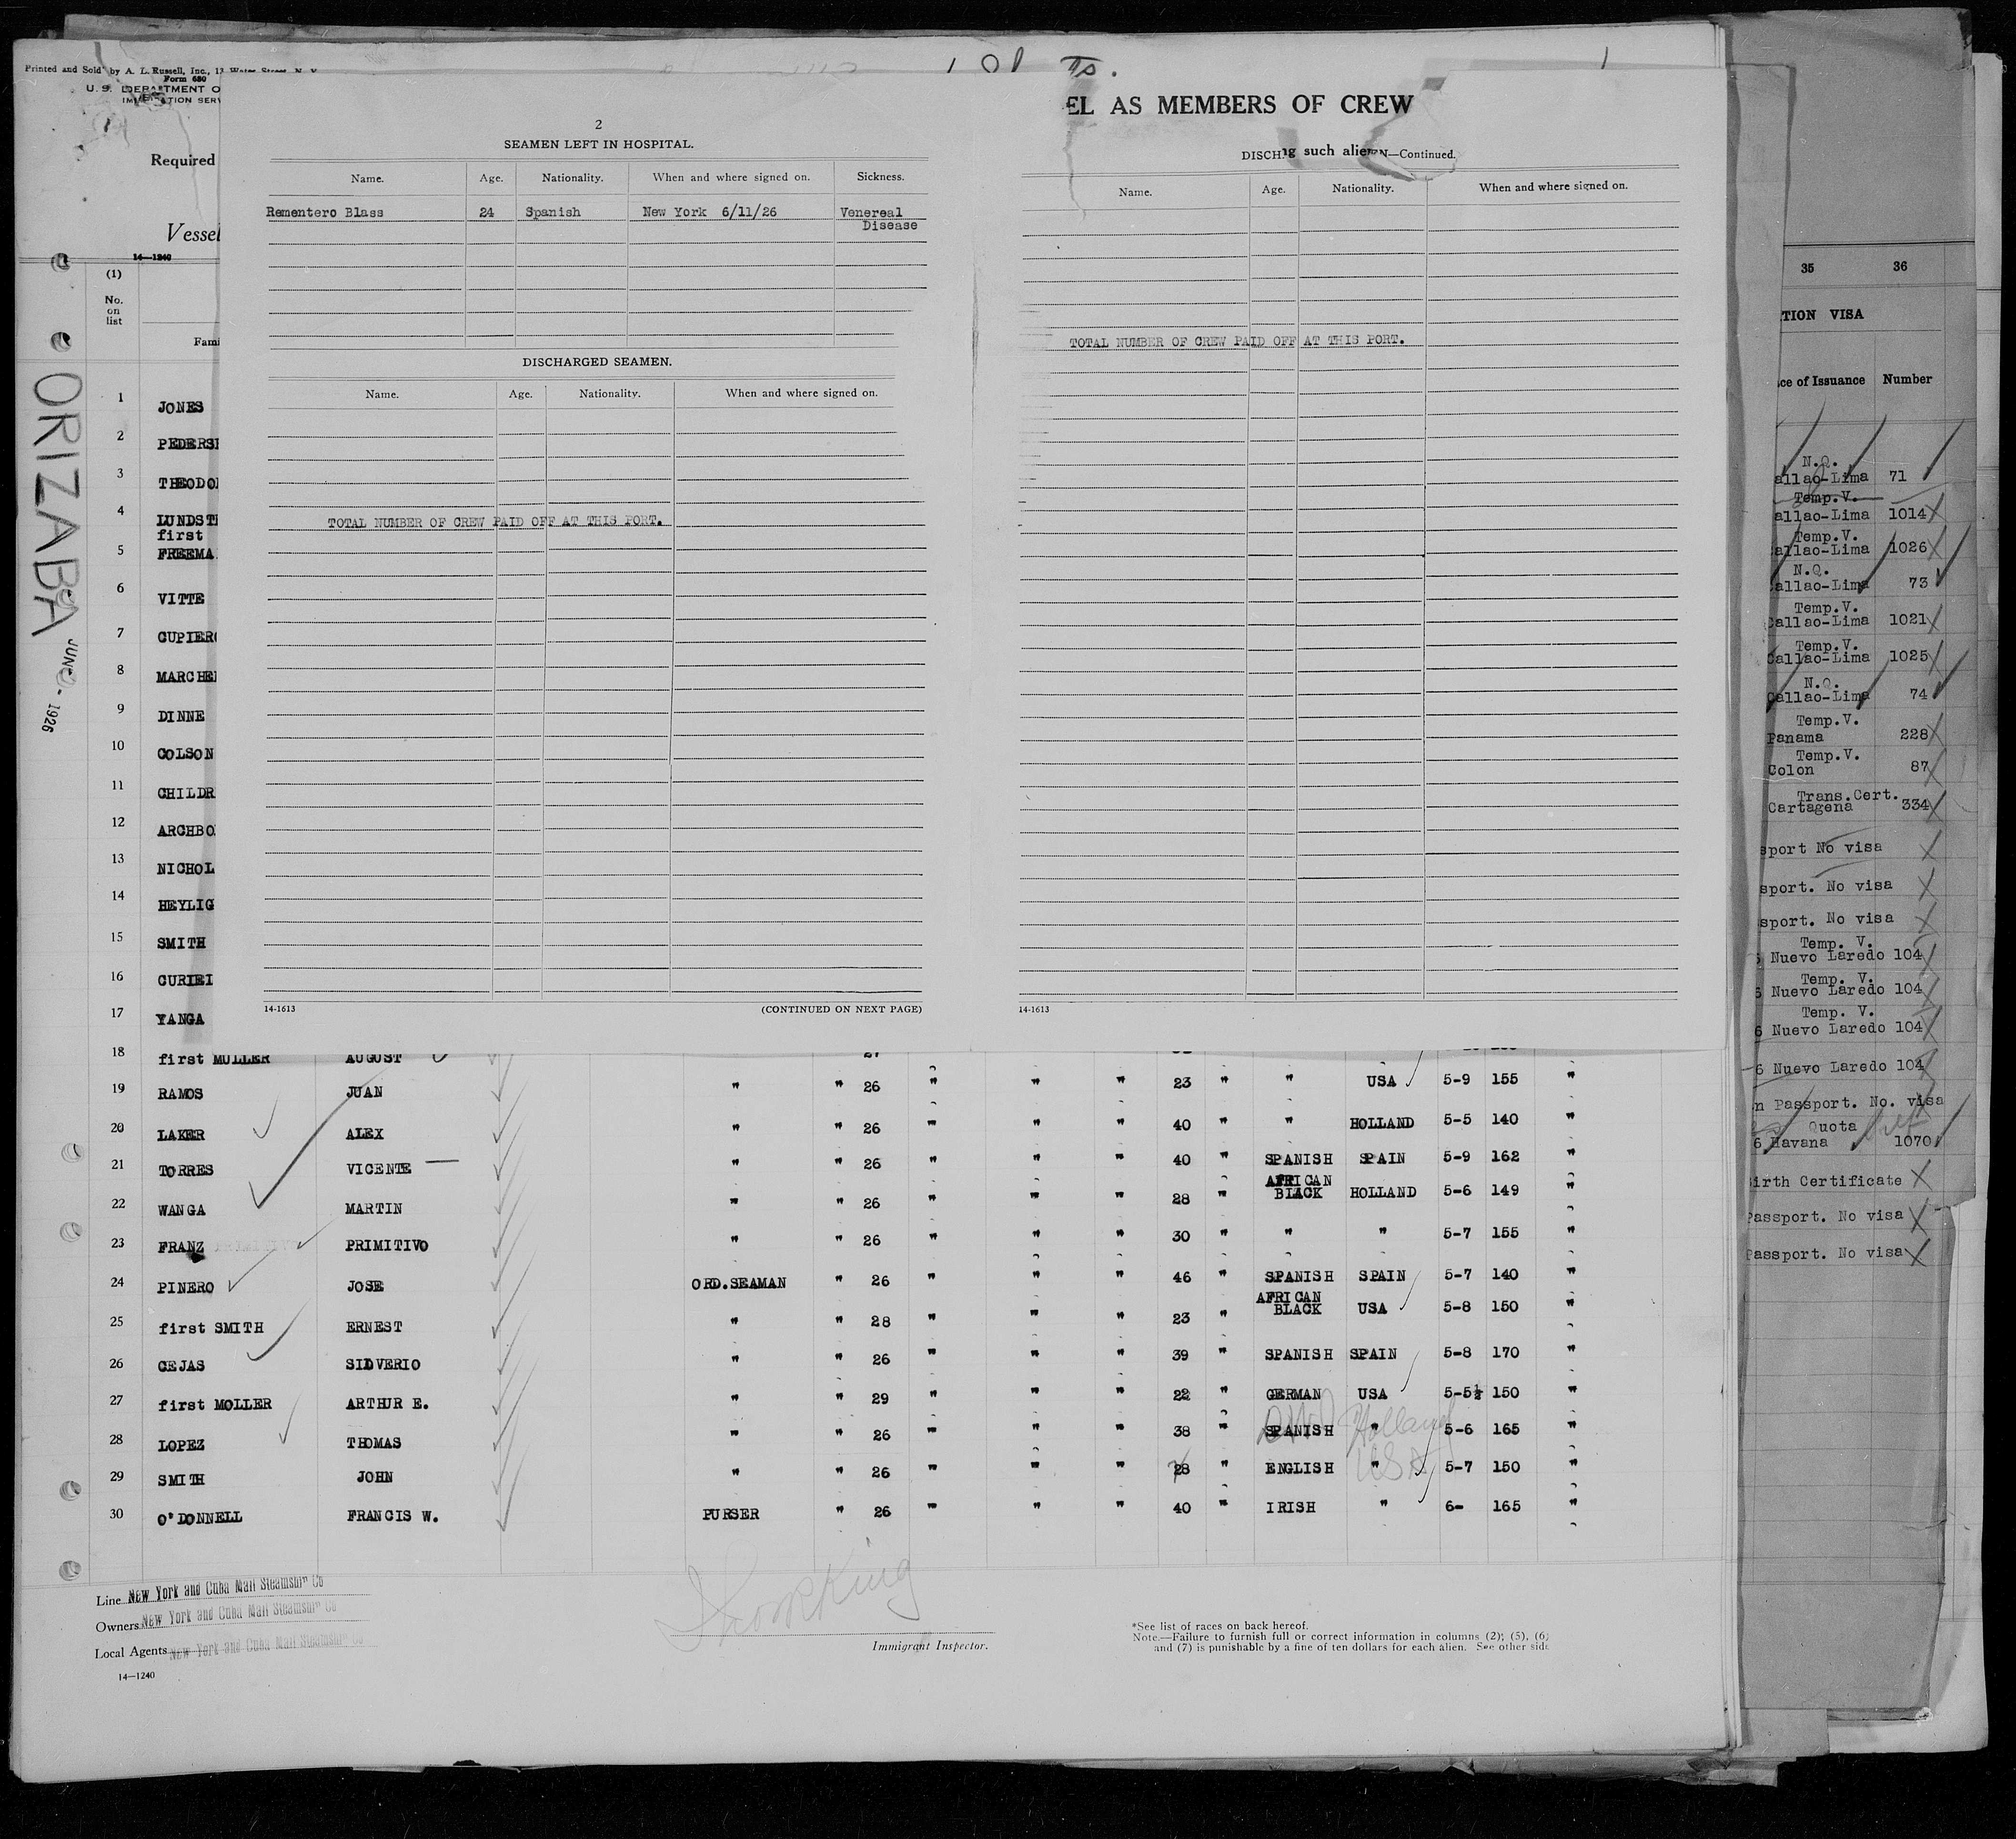 Printed and Sold by A. L. Russell, Inc., 12 Water Street, N. Y.
Form 680
U. S. DEPARTMENT O
IMMIGRATION SERV
Required
Vessel
14—1240
(1)
No. on list
Fami
ORIZABA
JUNE - 1926
EL AS MEMBERS OF CREW
ng such alien
2
SEAMEN LEFT IN HOSPITAL.
Name. Age. Nationality. When and where signed on. Sickness.
Rementero Blass 24 Spanish New York 6/11/26 Venereal
Disease
DISCHARGED SEAMEN.
Name. Age. Nationality. When and where signed on.
TOTAL NUMBER OF CREW PAID OFF AT THIS PORT.
14-1613 (CONTINUED ON NEXT PAGE)
DISCH N—Continued.
Name. Age. Nationality. When and where signed on.
TOTAL NUMBER OF CREW PAID OFF AT THIS PORT.
14-1613
1 JONES
2 PEDERSE
3 THEODO
4 LUNDST
first
5 FREEMA
6 VITTE
7 CUPIERO
8 MARCHE
9 DINNE
10 COLSON
11 CHILDR
12 ARCHBO
13 NICHOL
14 HEYLIG
15 SMITH
16 CURIEI
17 YANGA
18 first MULLER AUGUST 27
19 RAMOS JUAN " " 26 " " " 23 " " USA 5-9 155 "
20 LAKER ALEX " " 26 " " " 40 " " HOLLAND 5-5 140 "
21 TORRES VICENTE " " 26 " " " 40 " SPANISH SPAIN 5-9 162 "
22 WANGA MARTIN " " 26 " " " 28 " AFRICAN BLACK HOLLAND 5-6 149 "
23 FRANZ PRIMITIVO " " 26 " " " 30 " " " 5-7 155 "
24 PINERO JOSE ORD.SEAMAN " 26 " " " 46 " SPANISH SPAIN 5-7 140 "
25 first SMITH ERNEST " " 28 " " " 23 " AFRICAN BLACK USA 5-8 150 "
26 CEJAS SILVERIO " " 26 " " " 39 " SPANISH SPAIN 5-8 170 "
27 first MOLLER ARTHUR E. " " 29 " " " 22 " GERMAN USA 5-5½ 150 "
28 LOPEZ THOMAS " " 26 " " " 38 " SPANISH " Holland 5-6 165 "
29 SMITH JOHN " " 26 " " " 28 " ENGLISH " USA 5-7 150 "
30 O'DONNELL FRANCIS W. PURSER " 26 " " " 40 " IRISH " 6- 165 "
Line New York and Cuba Mail Steamship Co
Owners New York and Cuba Mail Steamship Co
Local Agents New York and Cuba Mail Steamship Co
14—1240
Immigrant Inspector.
*See list of races on back hereof.
Note.—Failure to furnish full or correct information in columns (2), (5), (6)
and (7) is punishable by a fine of ten dollars for each alien. See other side
35 36
TION VISA
ce of Issuance Number
N.Q.
allao-Lima 71
Temp.V.
allao-Lima 1014
Temp.V.
allao-Lima 1026
N.Q.
allao-Lima 73
Temp.V.
Callao-Lima 1021
Temp.V.
Callao-Lima 1025
N.Q.
Callao-Lima 74
Temp.V.
Panama 228
Temp.V.
Colon 87
Trans.Cert.
Cartagena 334
sport No visa
sport. No visa
sport. No visa
Temp. V.
6 Nuevo Laredo 104
Temp. V.
6 Nuevo Laredo 104
Temp. V.
6 Nuevo Laredo 104
6 Nuevo Laredo 104
n Passport. No. visa
Quota
6 Havana 1070
irth Certificate
Passport. No visa
Passport. No visa